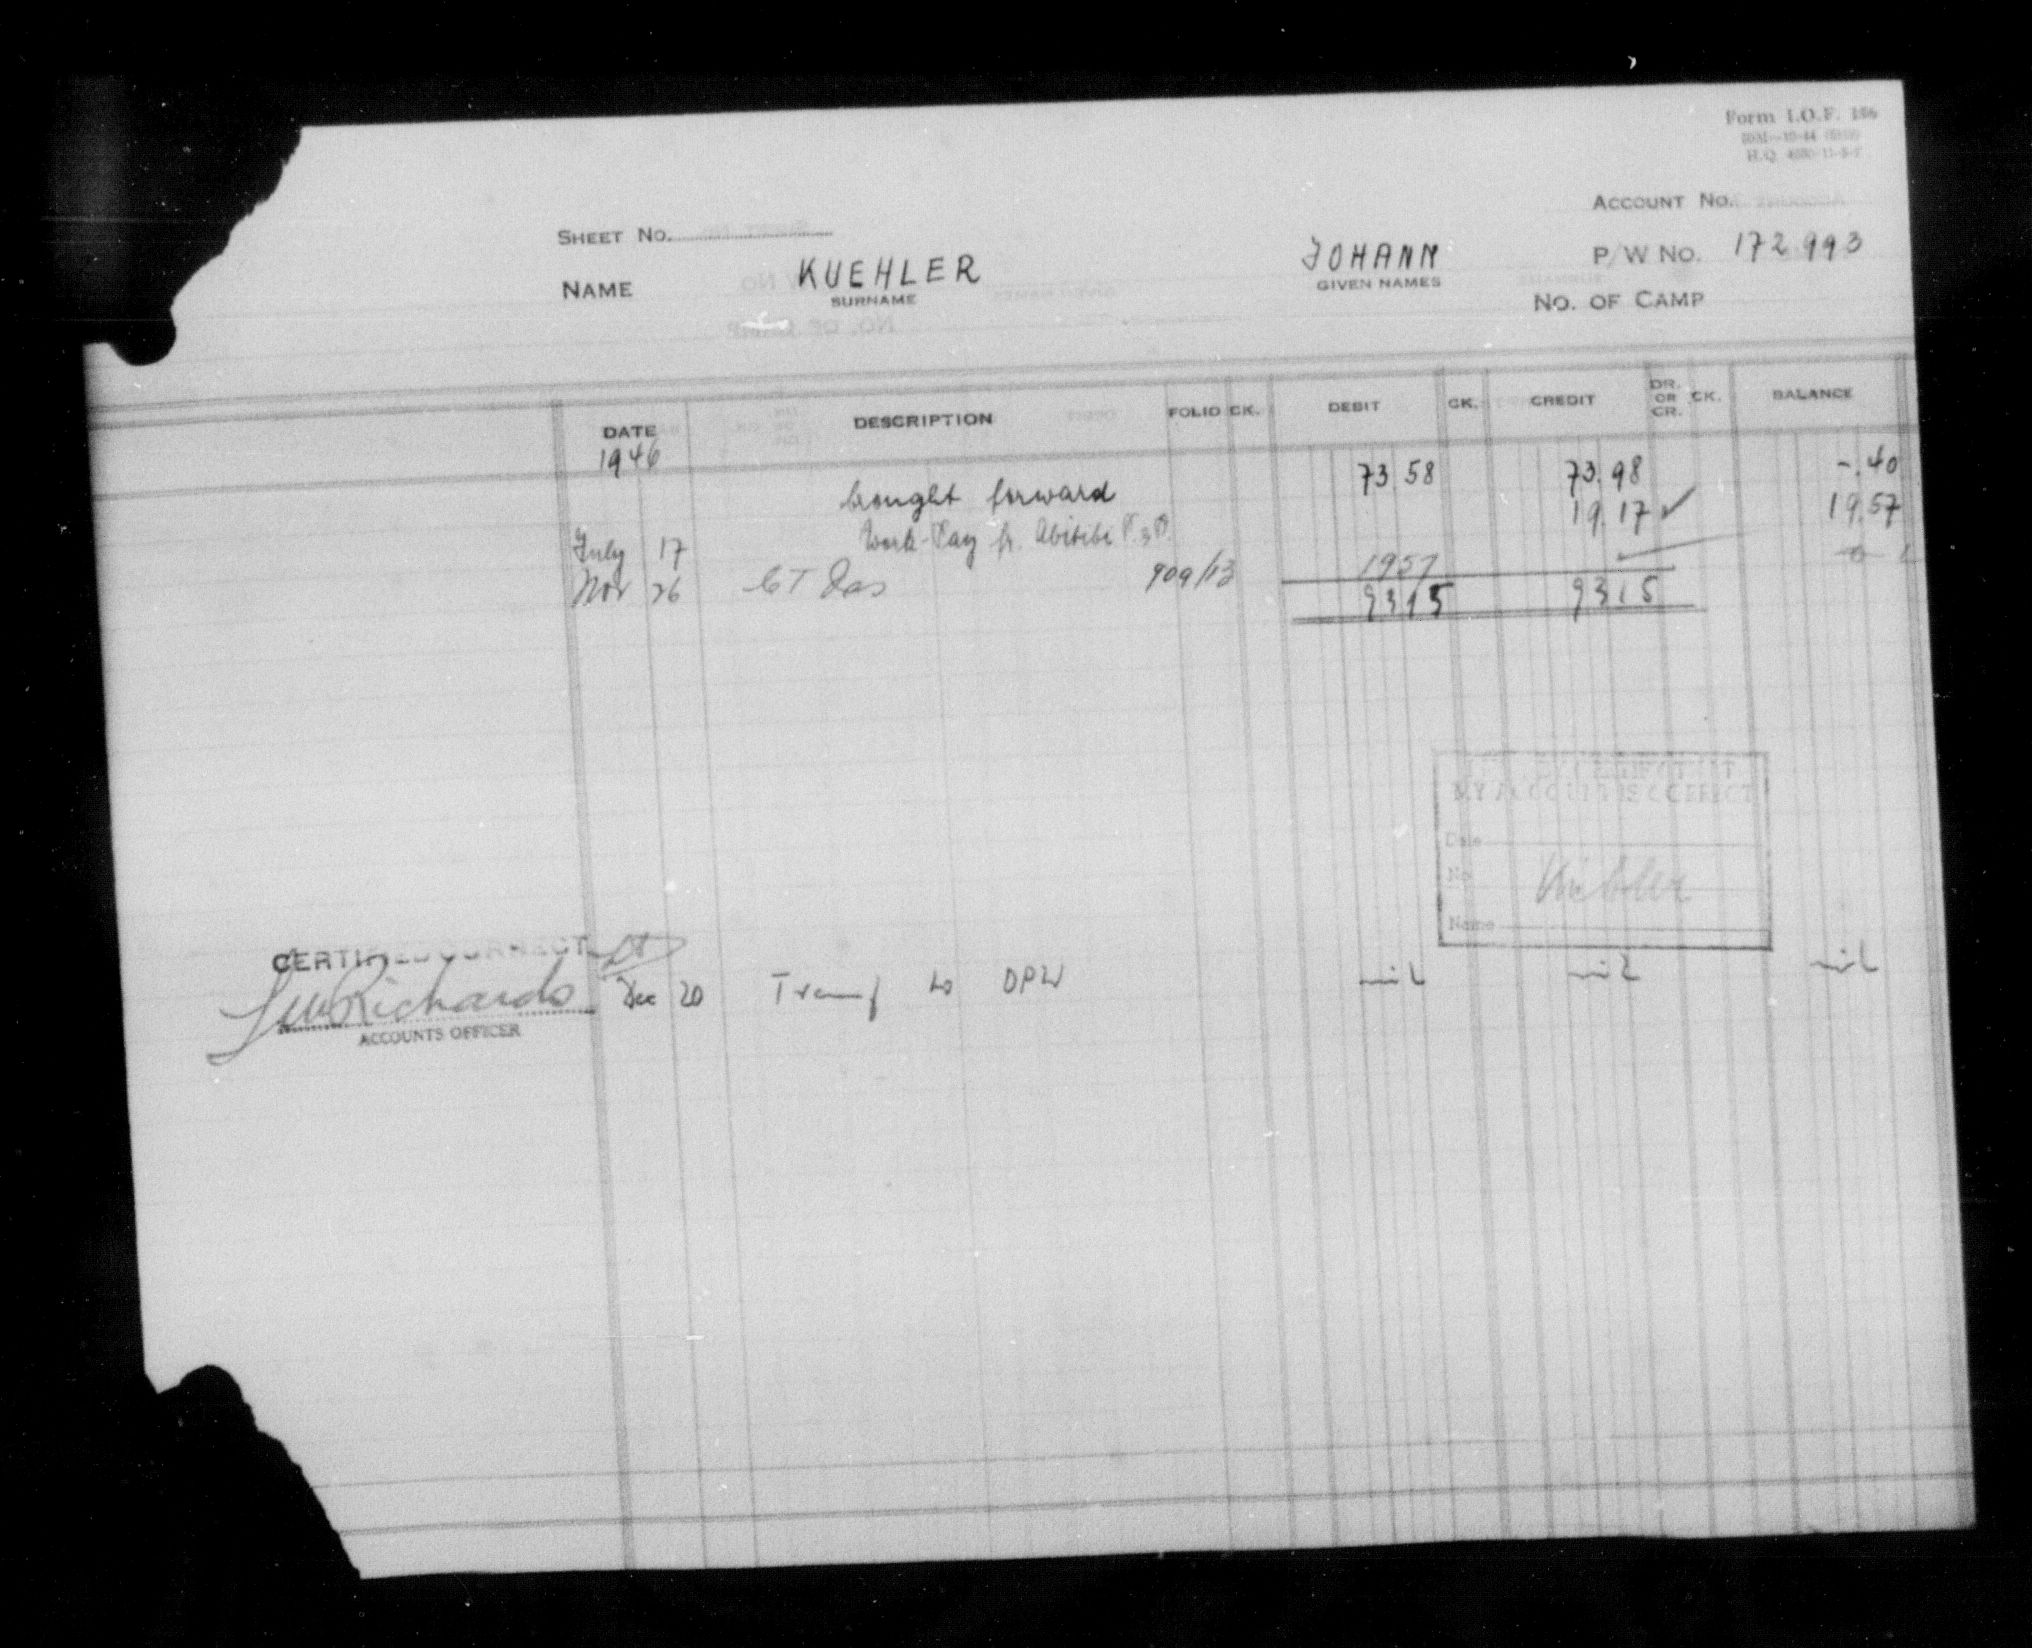 Form I.O.F. 186
H.Q.
ACCOUNT No.
SHEET No.
P/W No. 172993
NAME KUEHLER JOHANN
SURNAME GIVEN NAMES
No. OF CAMP
DATE DESCRIPTION FOLIO CK. DEBIT CK. CREDIT DR. OR CR. CK. BALANCE
1946
brought forward 73.58 73.98 -.40
July 17 Work-Pay fr. Abitibi P. & P. 19.17 ✓ 19.57
Nov 26 CT 909/13 1957
9315 9315
MY ACCOUNT IS CORRECT
Date
No
Name
CERTIFIED CORRECT
Richards Lt
ACCOUNTS OFFICER
Dec 20 Transf to DPW nil nil nil